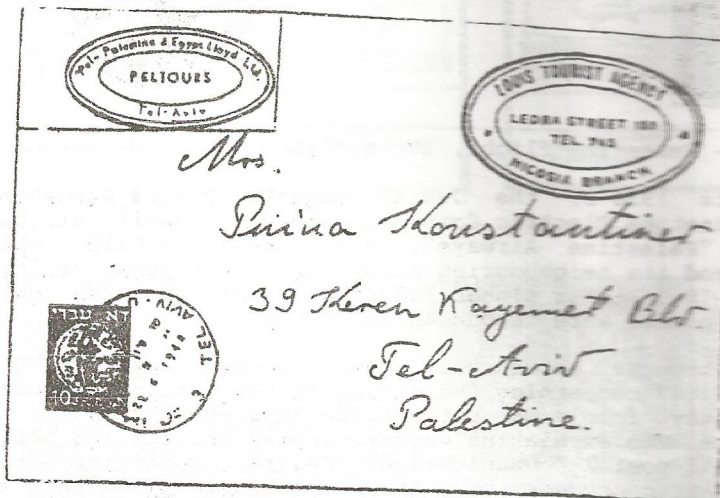 Pel-Palomina & Egypt Lloyd Ltd.
PELTOURS
Tel-Aviv
LOUIS TOURIST AGENCY
LEDRA STREET
TEL. 745
NICOSIA BRANCH
Mrs.
Pnina Konstantiner
39 Keren Kayemet Blv.
Tel-Aviv
Palestine.
TEL AVIV
10